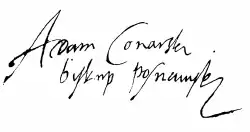 Adam Conarski
biskup posnanski